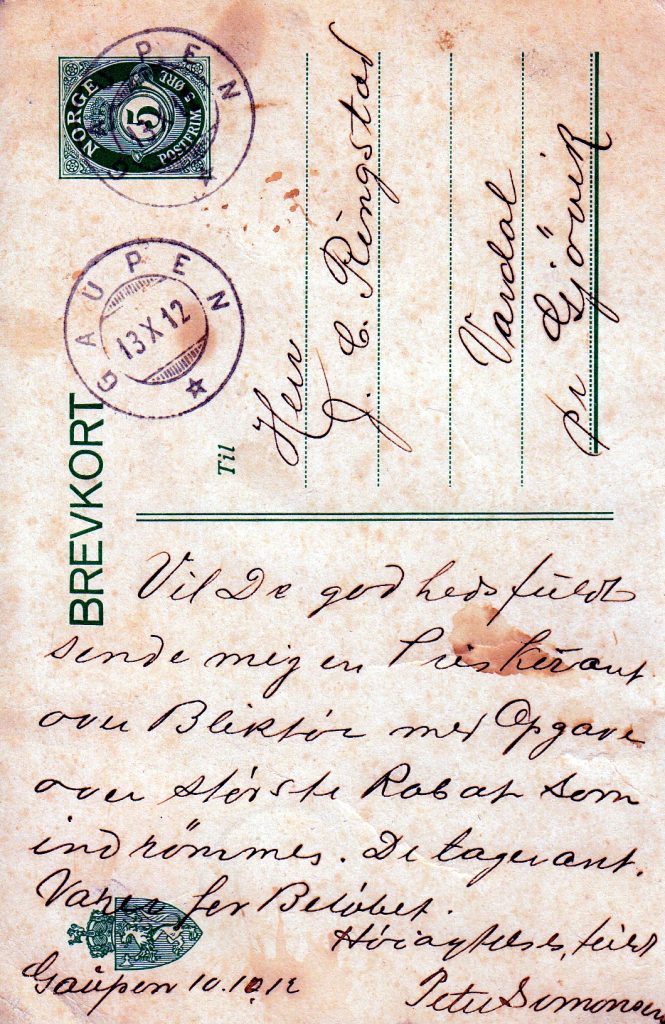 NORGE
POSTFRIM 5 ØRE
5
GAUPEN
GAUPEN
13 X 12
BREVKORT
Til
Herr
J. C. Ringstad
Vardal
pr Gjövik
Vil De godhedsfuldt
sende meg en Priskurant
over Bliktøi med Opgave
over største Rabat som
indrömmes. De tager ant.
Varer for Beløbet.
Høiagtelsesfuldt
Gaupen 10.10.12
Peter Simonsen